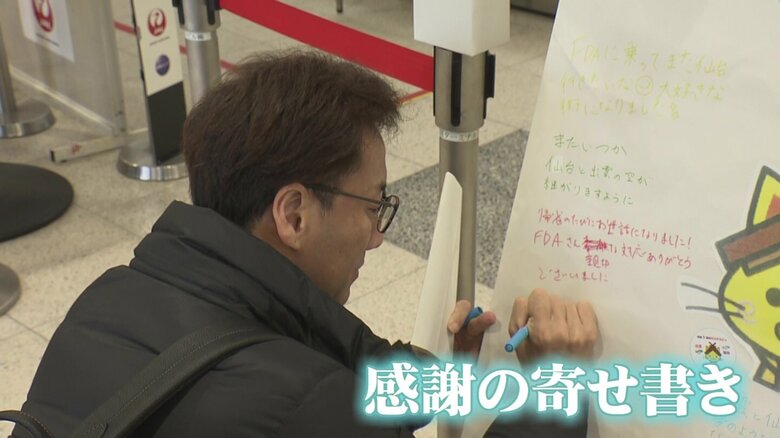 FDAに乗ってまた仙台
行きたいな 大好きな
街になりました
またいつか
仙台と出雲の空が
繋がりますように
帰省のたびにお世話になりました!
FDAさん な対応ありがとう
親切
ございました
感謝の寄せ書き